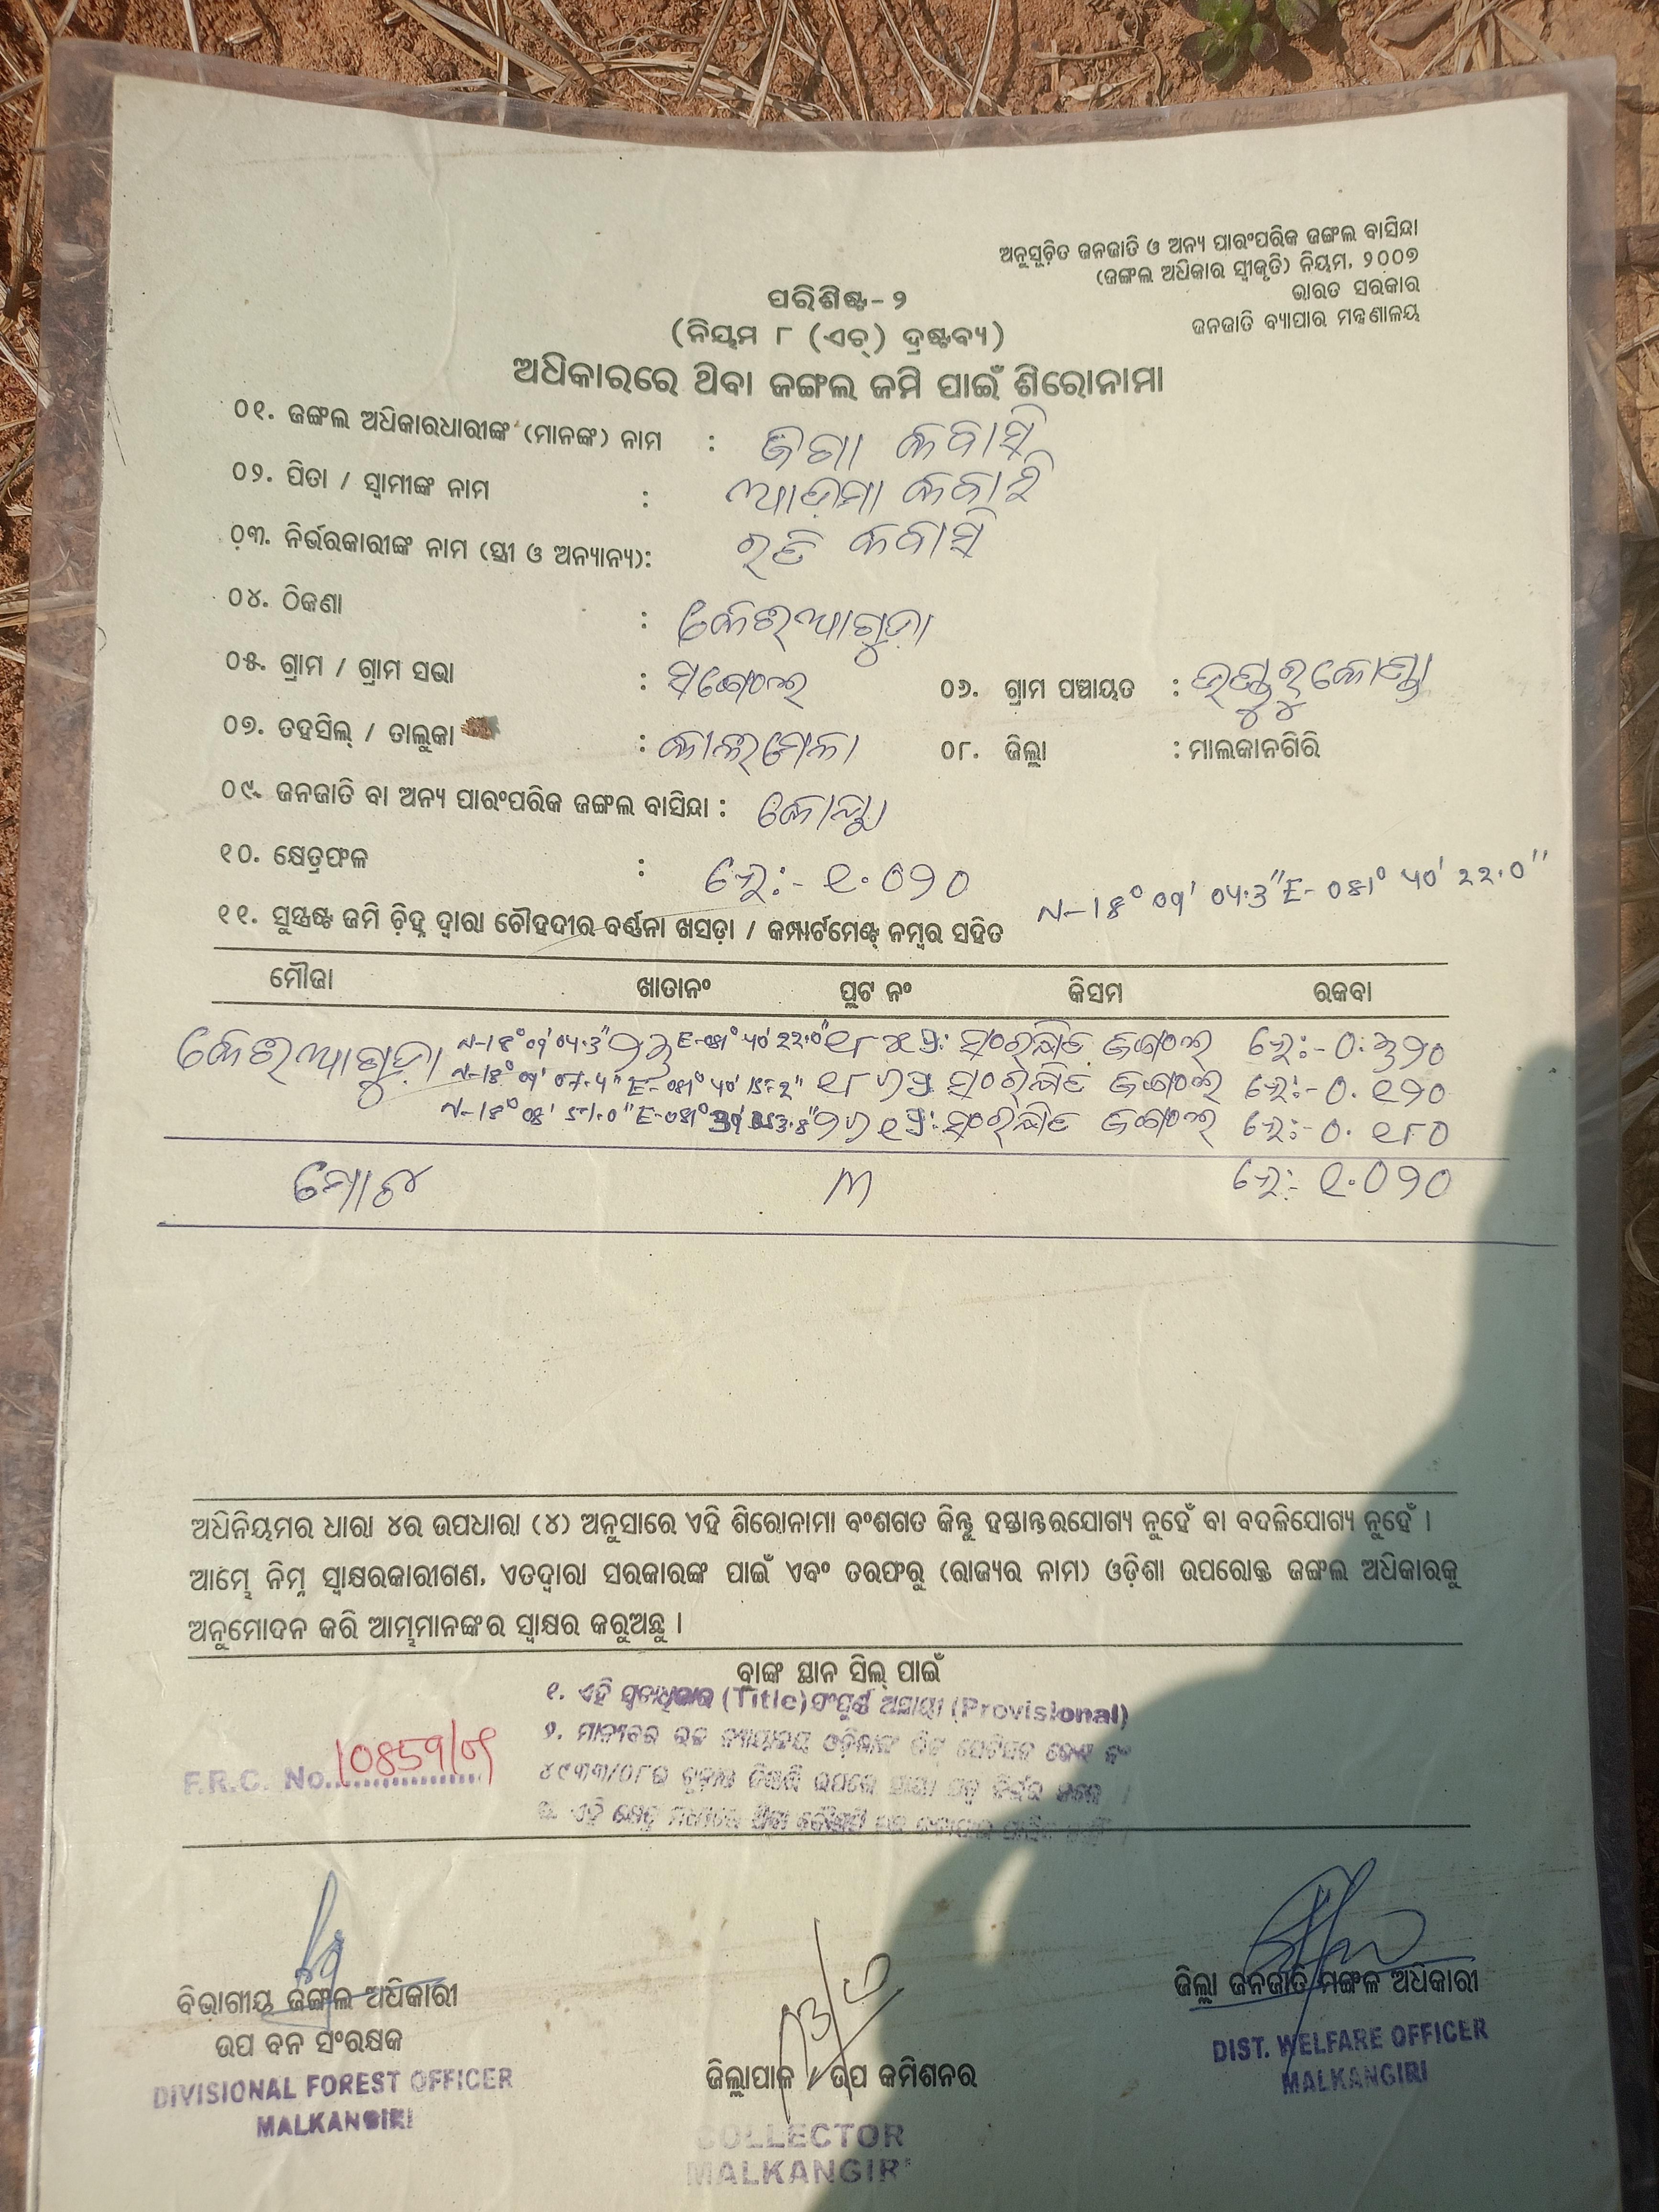 ଅନୁସୂଚିତ ଜନଜାତି ଓ ଅନ୍ୟ ପାରଂପରିକ ଜଙ୍ଗଲ ବାସିନ୍ଦା
(ଜଙ୍ଗଲ ଅଧିକାର ସ୍ୱୀକୃତି) ନିୟମ, ୨୦୦୭
ଭାରତ ସରକାର
ଜନଜାତି ବ୍ୟାପାର ମନ୍ତ୍ରଣାଳୟ
ପରିଶିଷ୍ଟ - ୨
(ନିୟମ ୮ (ଏଚ୍) ଦ୍ରଷ୍ଟବ୍ୟ)
ଅଧିକାରରେ ଥିବା ଜଙ୍ଗଲ ଜମି ପାଇଁ ଶିରୋନାମା
୦୧. ଜଙ୍ଗଲ ଅଧିକାରଧାରୀଙ୍କ (ମାନଙ୍କ) ନାମ : ଜିଗା କବାସି
୦୨. ପିତା / ସ୍ୱାମୀଙ୍କ ନାମ : ଆଡମା କବାସି
୦୩. ନିର୍ଭରକାରୀଙ୍କ ନାମ (ସ୍ତ୍ରୀ ଓ ଅନ୍ୟାନ୍ୟ): କବାସି
୦୪. ଠିକଣା :
୦୫. ଗ୍ରାମ / ଗ୍ରାମ ସଭା : ୦୬. ଗ୍ରାମ ପଞ୍ଚାୟତ :
୦୭. ତହସିଲ୍ / ତାଲୁକା : କାଲିମେଳା ୦୮. ଜିଲ୍ଲା : ମାଲକାନଗିରି
୦୯. ଜନଜାତି ବା ଅନ୍ୟ ପାରଂପରିକ ଜଙ୍ଗଲ ବାସିନ୍ଦା : କୋୟା
୧୦. କ୍ଷେତ୍ରଫଳ : ହେ:- ୧.୦୨୦
N-18° 09' 04.3" E- 081° 40' 22.0"
୧୧. ସୁସ୍ପଷ୍ଟ ଜମି ଚିହ୍ନ ଦ୍ୱାରା ଚୌହଦୀର ବର୍ଣ୍ଣନା ଖସଡ଼ା / କମ୍ପାର୍ଟମେଣ୍ଟ ନମ୍ବର ସହିତ
ମୌଜା ଖାତାନଂ ପ୍ଲଟ ନଂ କିସମ ରକବା
N-18° 09' 04.3" E-081° 40' 22.0" ସଂରକ୍ଷିତ ଜଙ୍ଗଲ ହେ:- ୦.
ସଂରକ୍ଷିତ ଜଙ୍ଗଲ ହେ:- ୦.୧୨୦
ସଂରକ୍ଷିତ ଜଙ୍ଗଲ ହେ:- ୦.୧୮୦
ମୋଟ ୩ ହେ:- ୧.୦୨୦
ଅଧିନିୟମର ଧାରା ୪ର ଉପଧାରା (୪) ଅନୁସାରେ ଏହି ଶିରୋନାମା ବଂଶଗତ କିନ୍ତୁ ହସ୍ତାନ୍ତରଯୋଗ୍ୟ ନୁହେଁ ବା ବଦଳିଯୋଗ୍ୟ ନୁହେଁ ।
ଆମ୍ଭେ ନିମ୍ନ ସ୍ୱାକ୍ଷରକାରୀଗଣ, ଏତଦ୍ୱାରା ସରକାରଙ୍କ ପାଇଁ ଏବଂ ତରଫରୁ (ରାଜ୍ୟର ନାମ) ଓଡ଼ିଶା ଉପରୋକ୍ତ ଜଙ୍ଗଲ ଅଧିକାରକୁ
ଅନୁମୋଦନ କରି ଆମ୍ଭମାନଙ୍କର ସ୍ୱାକ୍ଷର କରୁଅଛୁ ।
ବ୍ଲାଙ୍କ ସ୍ଥାନ ସିଲ୍ ପାଇଁ
୧. ଏହି (Title) ସଂପୂର୍ଣ୍ଣ ଅସ୍ଥାୟୀ (Provisional)
F.R.C. No. 10859/09
ବିଭାଗୀୟ ଜଙ୍ଗଲ ଅଧିକାରୀ
ଉପ ବନ ସଂରକ୍ଷକ
DIVISIONAL FOREST OFFICER
MALKANGIRI
ଜିଲ୍ଲାପାଳ / ଉପ କମିଶନର
COLLECTOR
MALKANGIRI
ଜିଲ୍ଲା ଜନଜାତି ମଙ୍ଗଳ ଅଧିକାରୀ
DIST. WELFARE OFFICER
MALKANGIRI